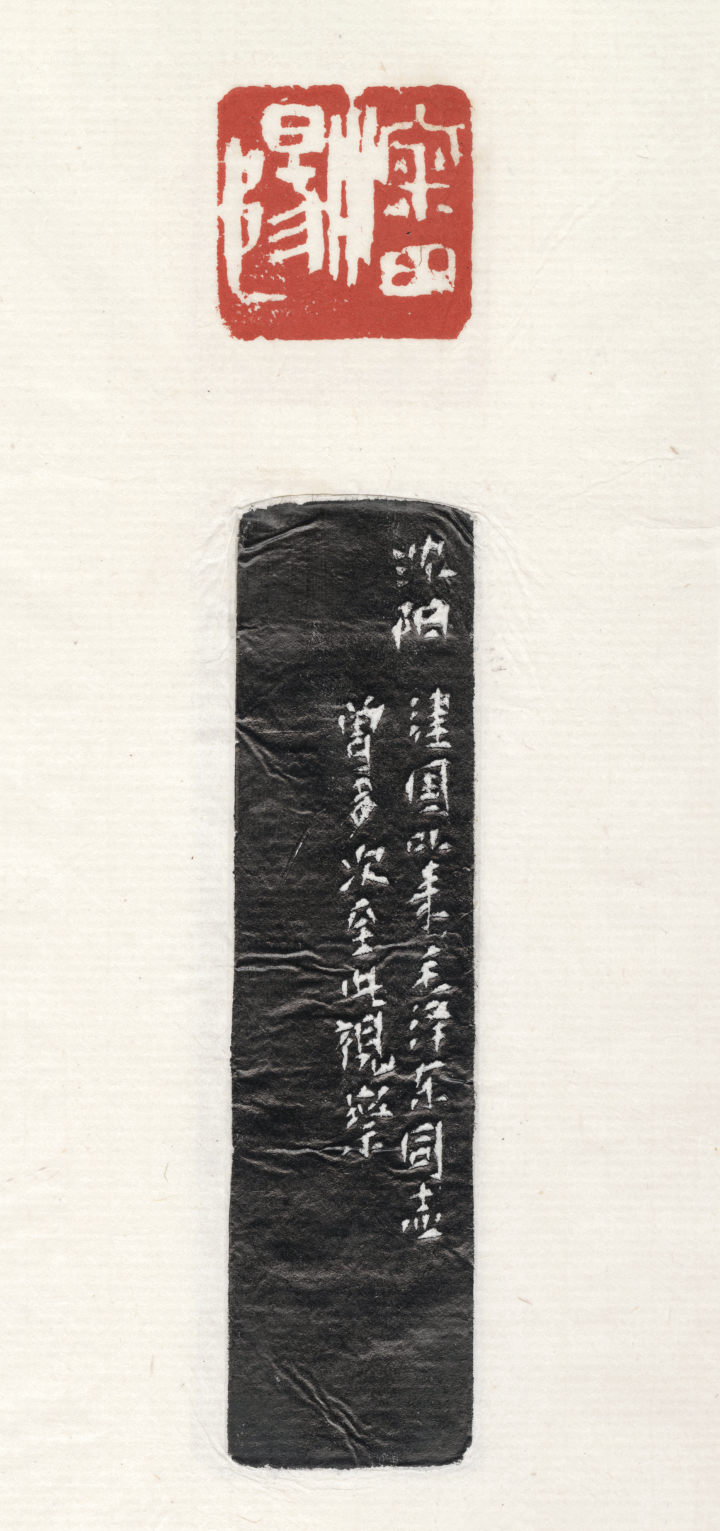 瀋陽
沈阳
建国以来毛泽东同志
曾多次至此視察